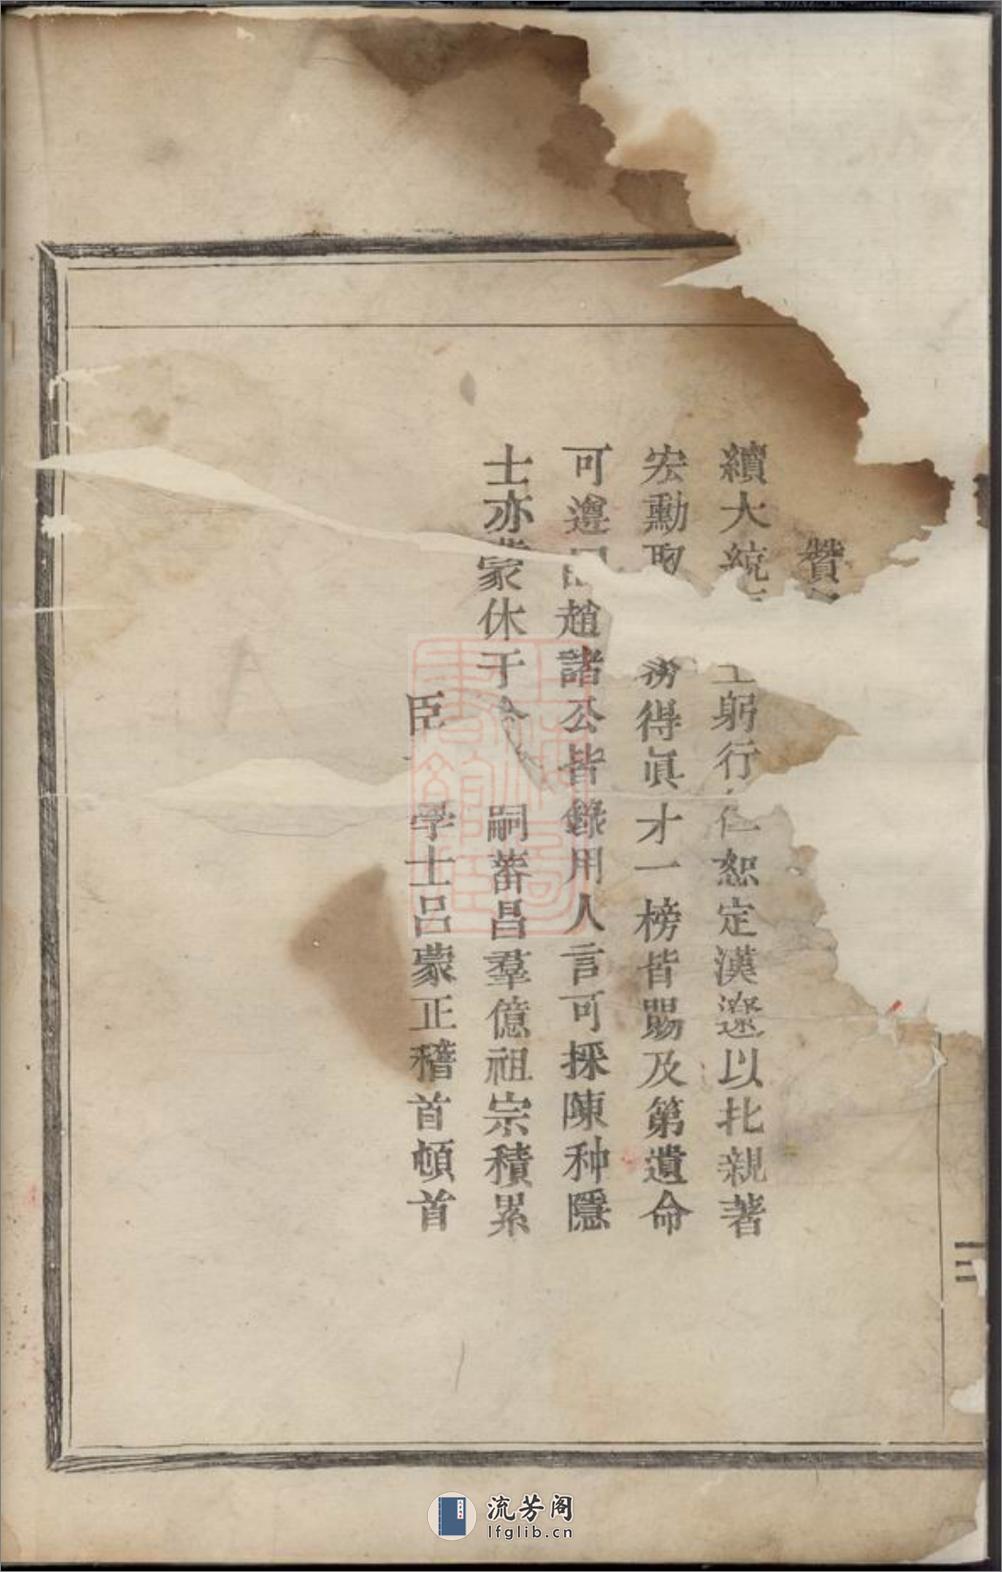 贊
續大統 躬行仁恕定漢遼以北親著
宏勳取 得眞才一榜皆賜及第遺命
可遵 趙諸公皆錄用人言可採陳种隱
士亦蒙休于今 嗣蕃昌羣億祖宗積累
臣 學士呂蒙正稽首頓首
二
流芳阁
lfglib.cn